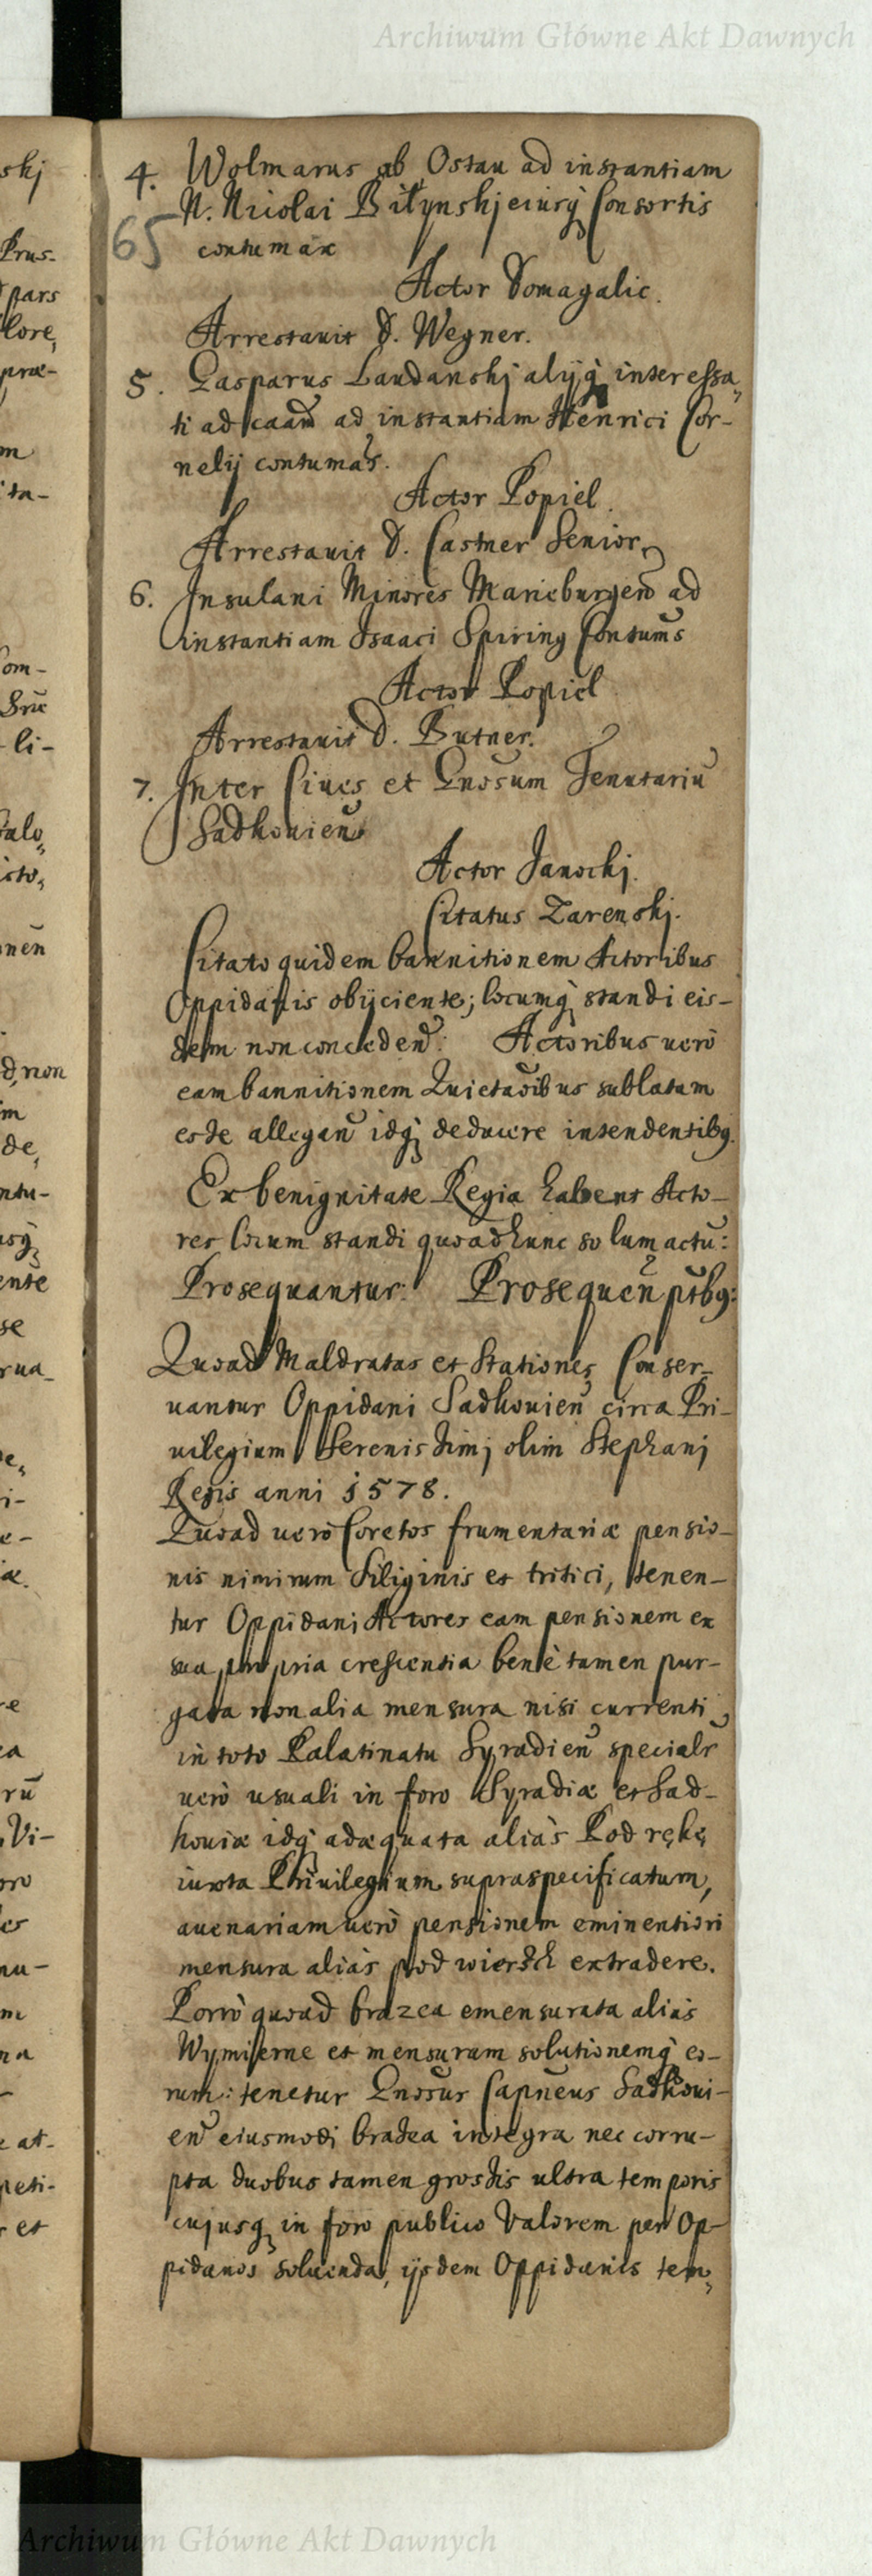 Archiwum Główne Akt Dawnych
4. Wolmarus ab Ostau ad instantiam
N. Nicolai Biłynskj eiusq Consortis
65
contumax
Actor Domagalic.
Arrestauit D. Wegner.
5. Gasparus Laudanskj alijq interessa„
ti ad caām ad instantiam Henrici Cor-
nelij contumaš.
Actor Popiel.
Arrestauit D. Castner Senior
6. Insulani Minores Marieburgeñ ad
instantiam Isaaci Spiring Contumš
Actor Popiel
Arrestauit D. Butner.
7. Inter Ciues et Gnosum Tenutariū
Sadkouieñ
Actor Janockj.
Citatus Zarenskj.
Citato quidem bannitionem Actoribus
Oppidanis obijciente; locumq standi eis-
dem non concedeñ: Actoribus uerò
eam bannitionem Quietaōibus sublatam
esse allegañ idq deducere intendentibq.
Ex benignitate Regia habent Acto-
res locum standi quoad hunc solum actū:
Prosequantur: Prosequeñ ptbq:
Quoad Maldratas et Stationes Conser-
uantur Oppidani Sadkouieñ circa Pri-
uilegium Serenissimj olim Stephanj
Regis anni 1578.
Quoad uerò Coretos frumentariæ pensio-
nis nimirum Siliginis et tritici, tenen-
tur Oppidani Actores eam pensionem ex
sua propria crescentia benè tamen pur-
gata non alia mensura nisi currenti
in toto Palatinatu Syradieñ specialr
uerò usuali in foro Syradiæ et Sad-
kouiæ idq adæquata aliàs Pod rękę
iuxta Priuilegium supraspecificatum,
auenariam uerò pensionem eminentiori
mensura aliàs pod wierzch extradere.
Porrò quoad brazea emensurata aliàs
Wymiserne et mensuram solutionemq eo-
rum: tenetur Gnosus Capneus Sadkoui-
eñ eiusmodi brasea integra nec corru-
pta duobus tamen grossis ultra temporis
cujusq in foro publico Valorem per Op-
pidanos soluenda, ijsdem Oppidanis tem„
Archiwum Główne Akt Dawnych